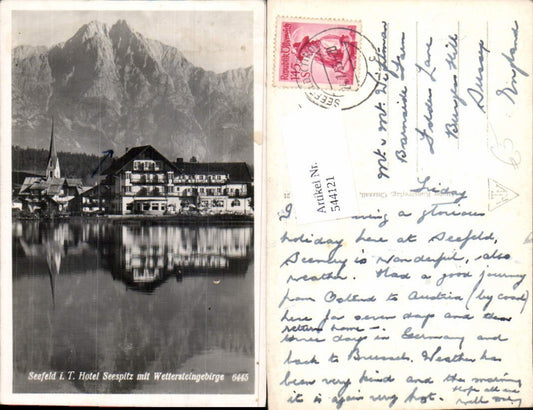 Seefeld i. T. Hotel Seespitz mit Wettersteingebirge 6445
Republik Österreich
1.45
SEEFELD
Artikel Nr.
544121
Mr & Mrs
Barnside
Folders Lane
Burgess Hill
Sussex
England
Friday
a glorious
holiday here at Seefeld,
Scenery is wonderful, also
weather. Had a good journey
from Ostend to Austria (by coach)
here for seven days and then
return home -
three days in Germany and
back to Brussels. Weather has
been very kind and this morning
it is again very hot.
Hope all are
well